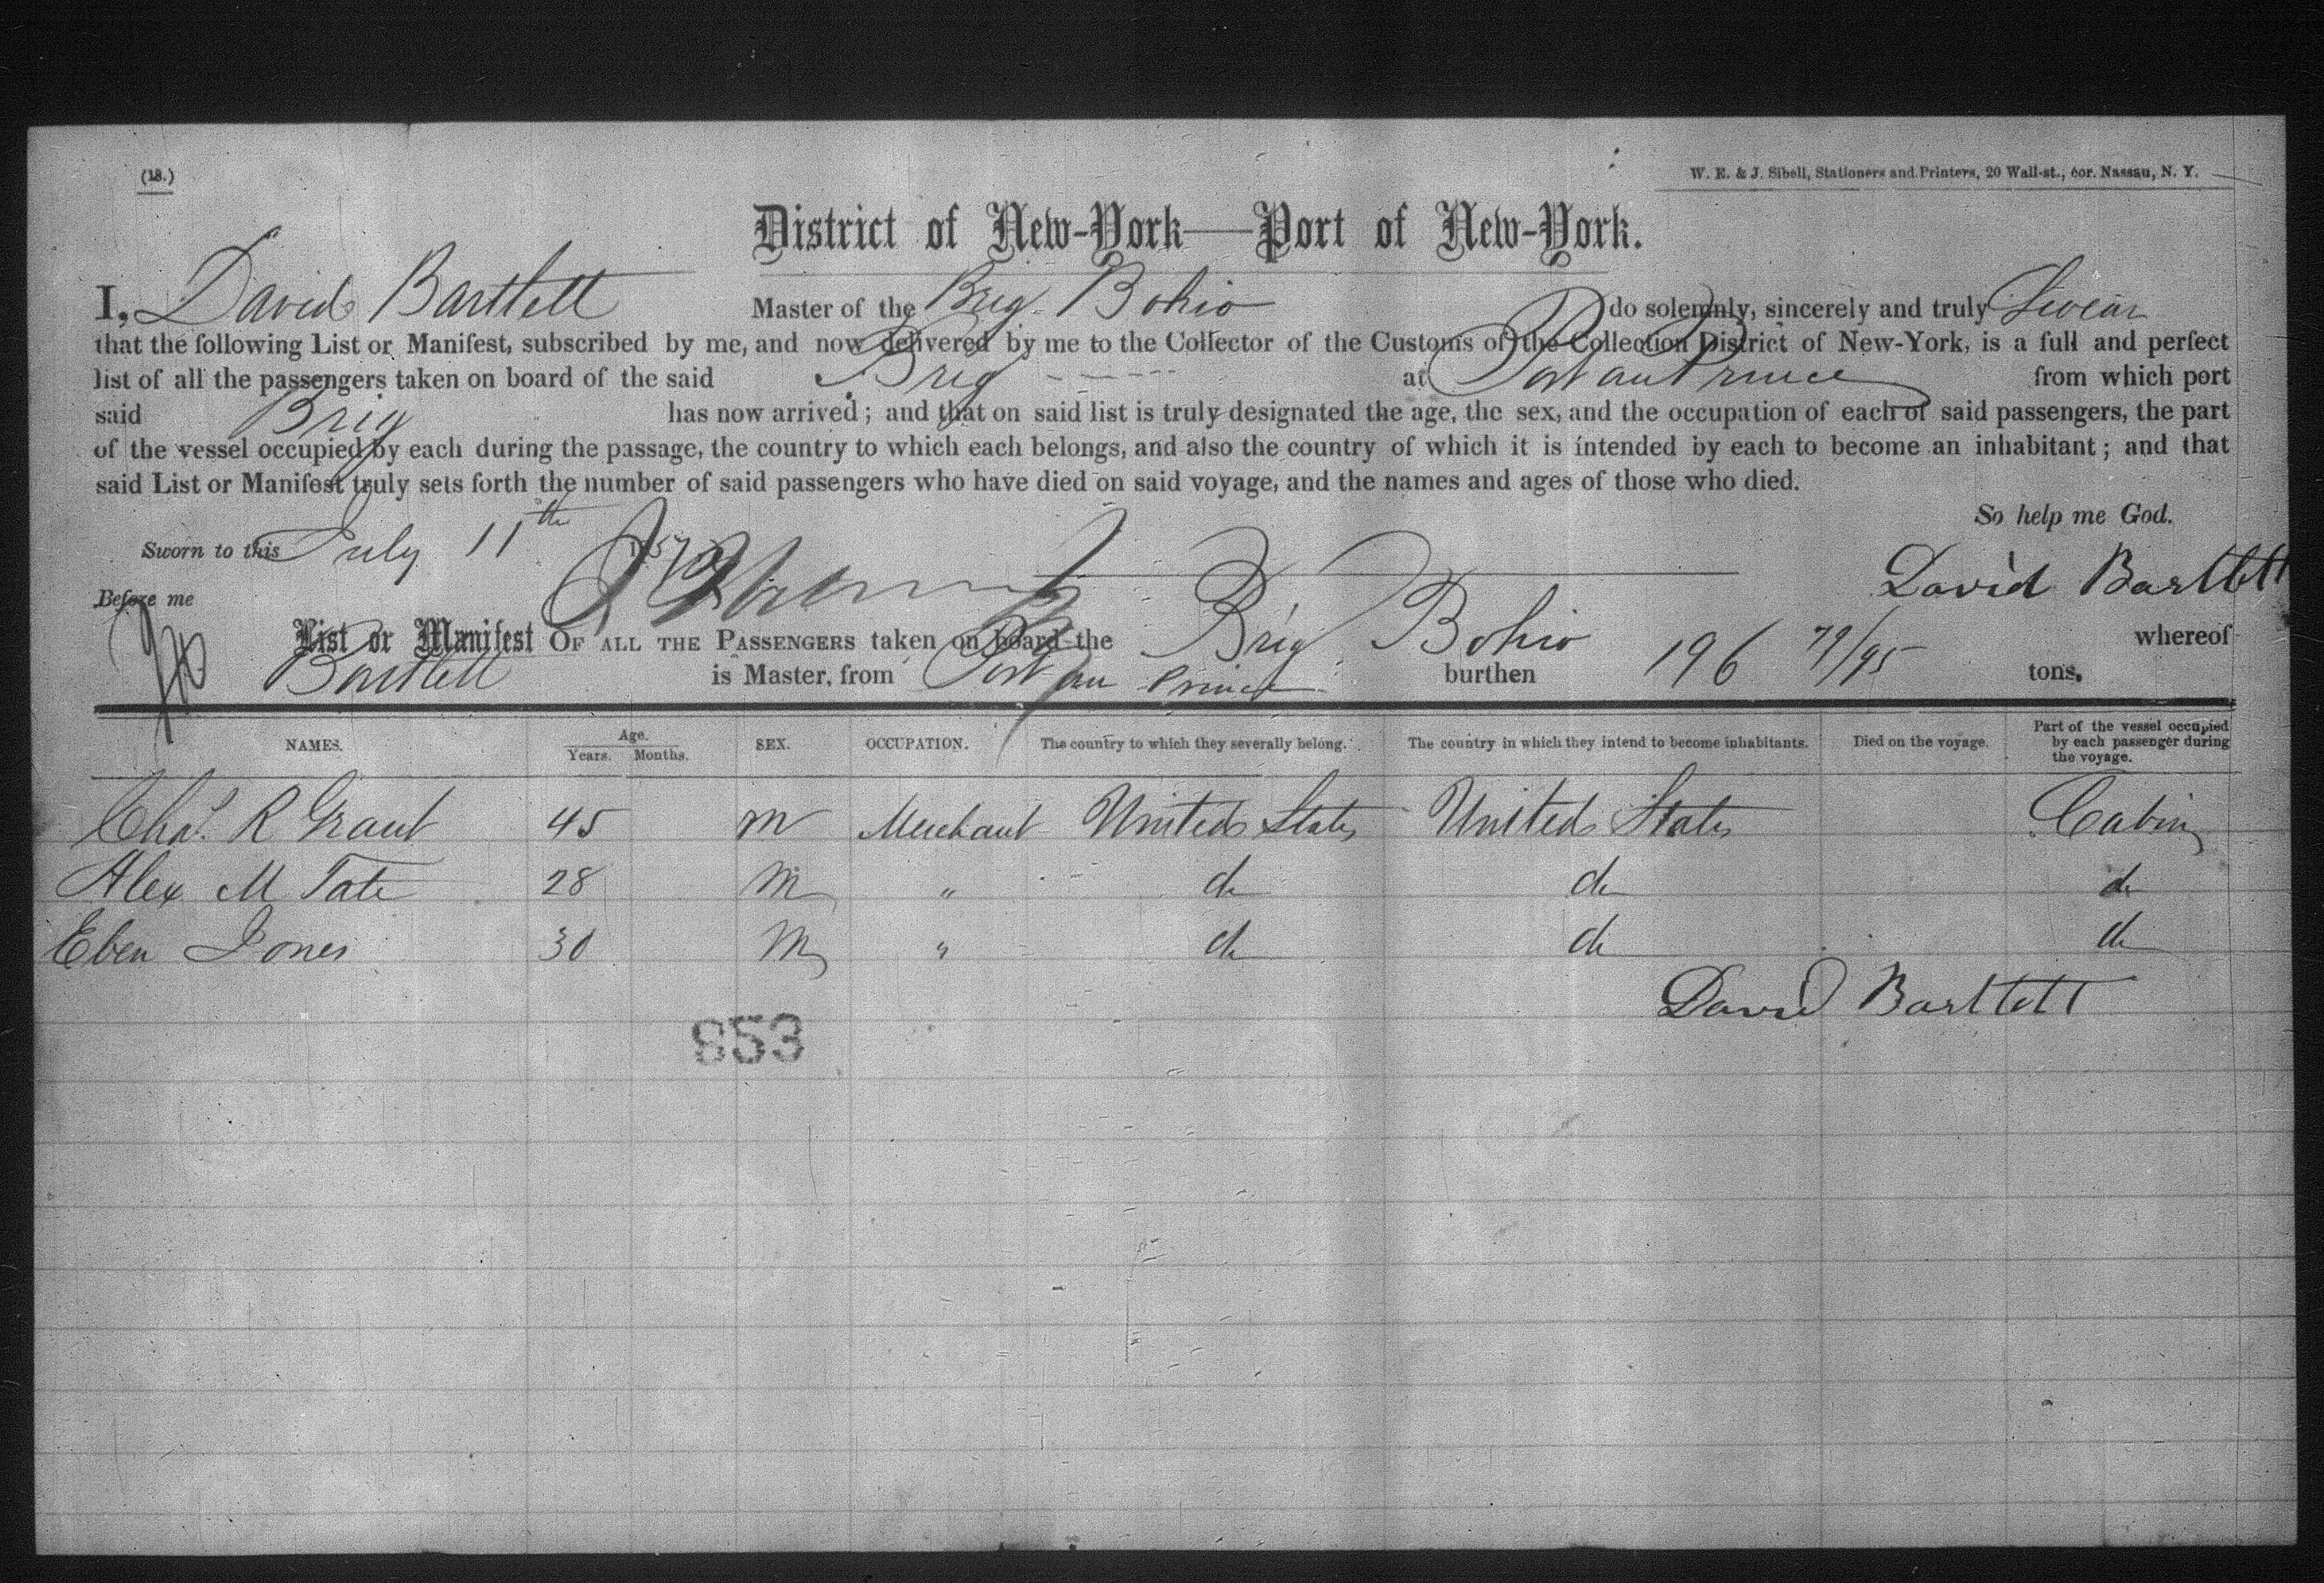 (18.)
W. E. & J. Sibell, Stationers and Printers, 20 Wall-st., cor. Nassau, N. Y.
District of New-York—Port of New-York.
I, David Bartlett Master of the Brig Bohio do solemnly, sincerely and truly Swear
that the following List or Manifest, subscribed by me, and now delivered by me to the Collector of the Customs of the Collection District of New-York, is a full and perfect
list of all the passengers taken on board of the said Brig at Port au Prince from which port
said Brig has now arrived; and that on said list is truly designated the age, the sex, and the occupation of each of said passengers, the part
of the vessel occupied by each during the passage, the country to which each belongs, and also the country of which it is intended by each to become an inhabitant; and that
said List or Manifest truly sets forth the number of said passengers who have died on said voyage, and the names and ages of those who died.
So help me God.
Sworn to this July 11th
David Bartlett
Before me
List or Manifest OF ALL THE PASSENGERS taken on board the Brig Bohio whereof
Bartlett is Master, from Port au Prince burthen 196 79/95 tons.
NAMES. Age. Years. Months. SEX. OCCUPATION. The country to which they severally belong. The country in which they intend to become inhabitants. Died on the voyage. Part of the vessel occupied by each passenger during the voyage.
Chas. R Grant 45 M Merchant United States United States Cabin
Alex M Tate 28 M " do do do
Eben Jones 30 M " do do do
David Bartlett
853